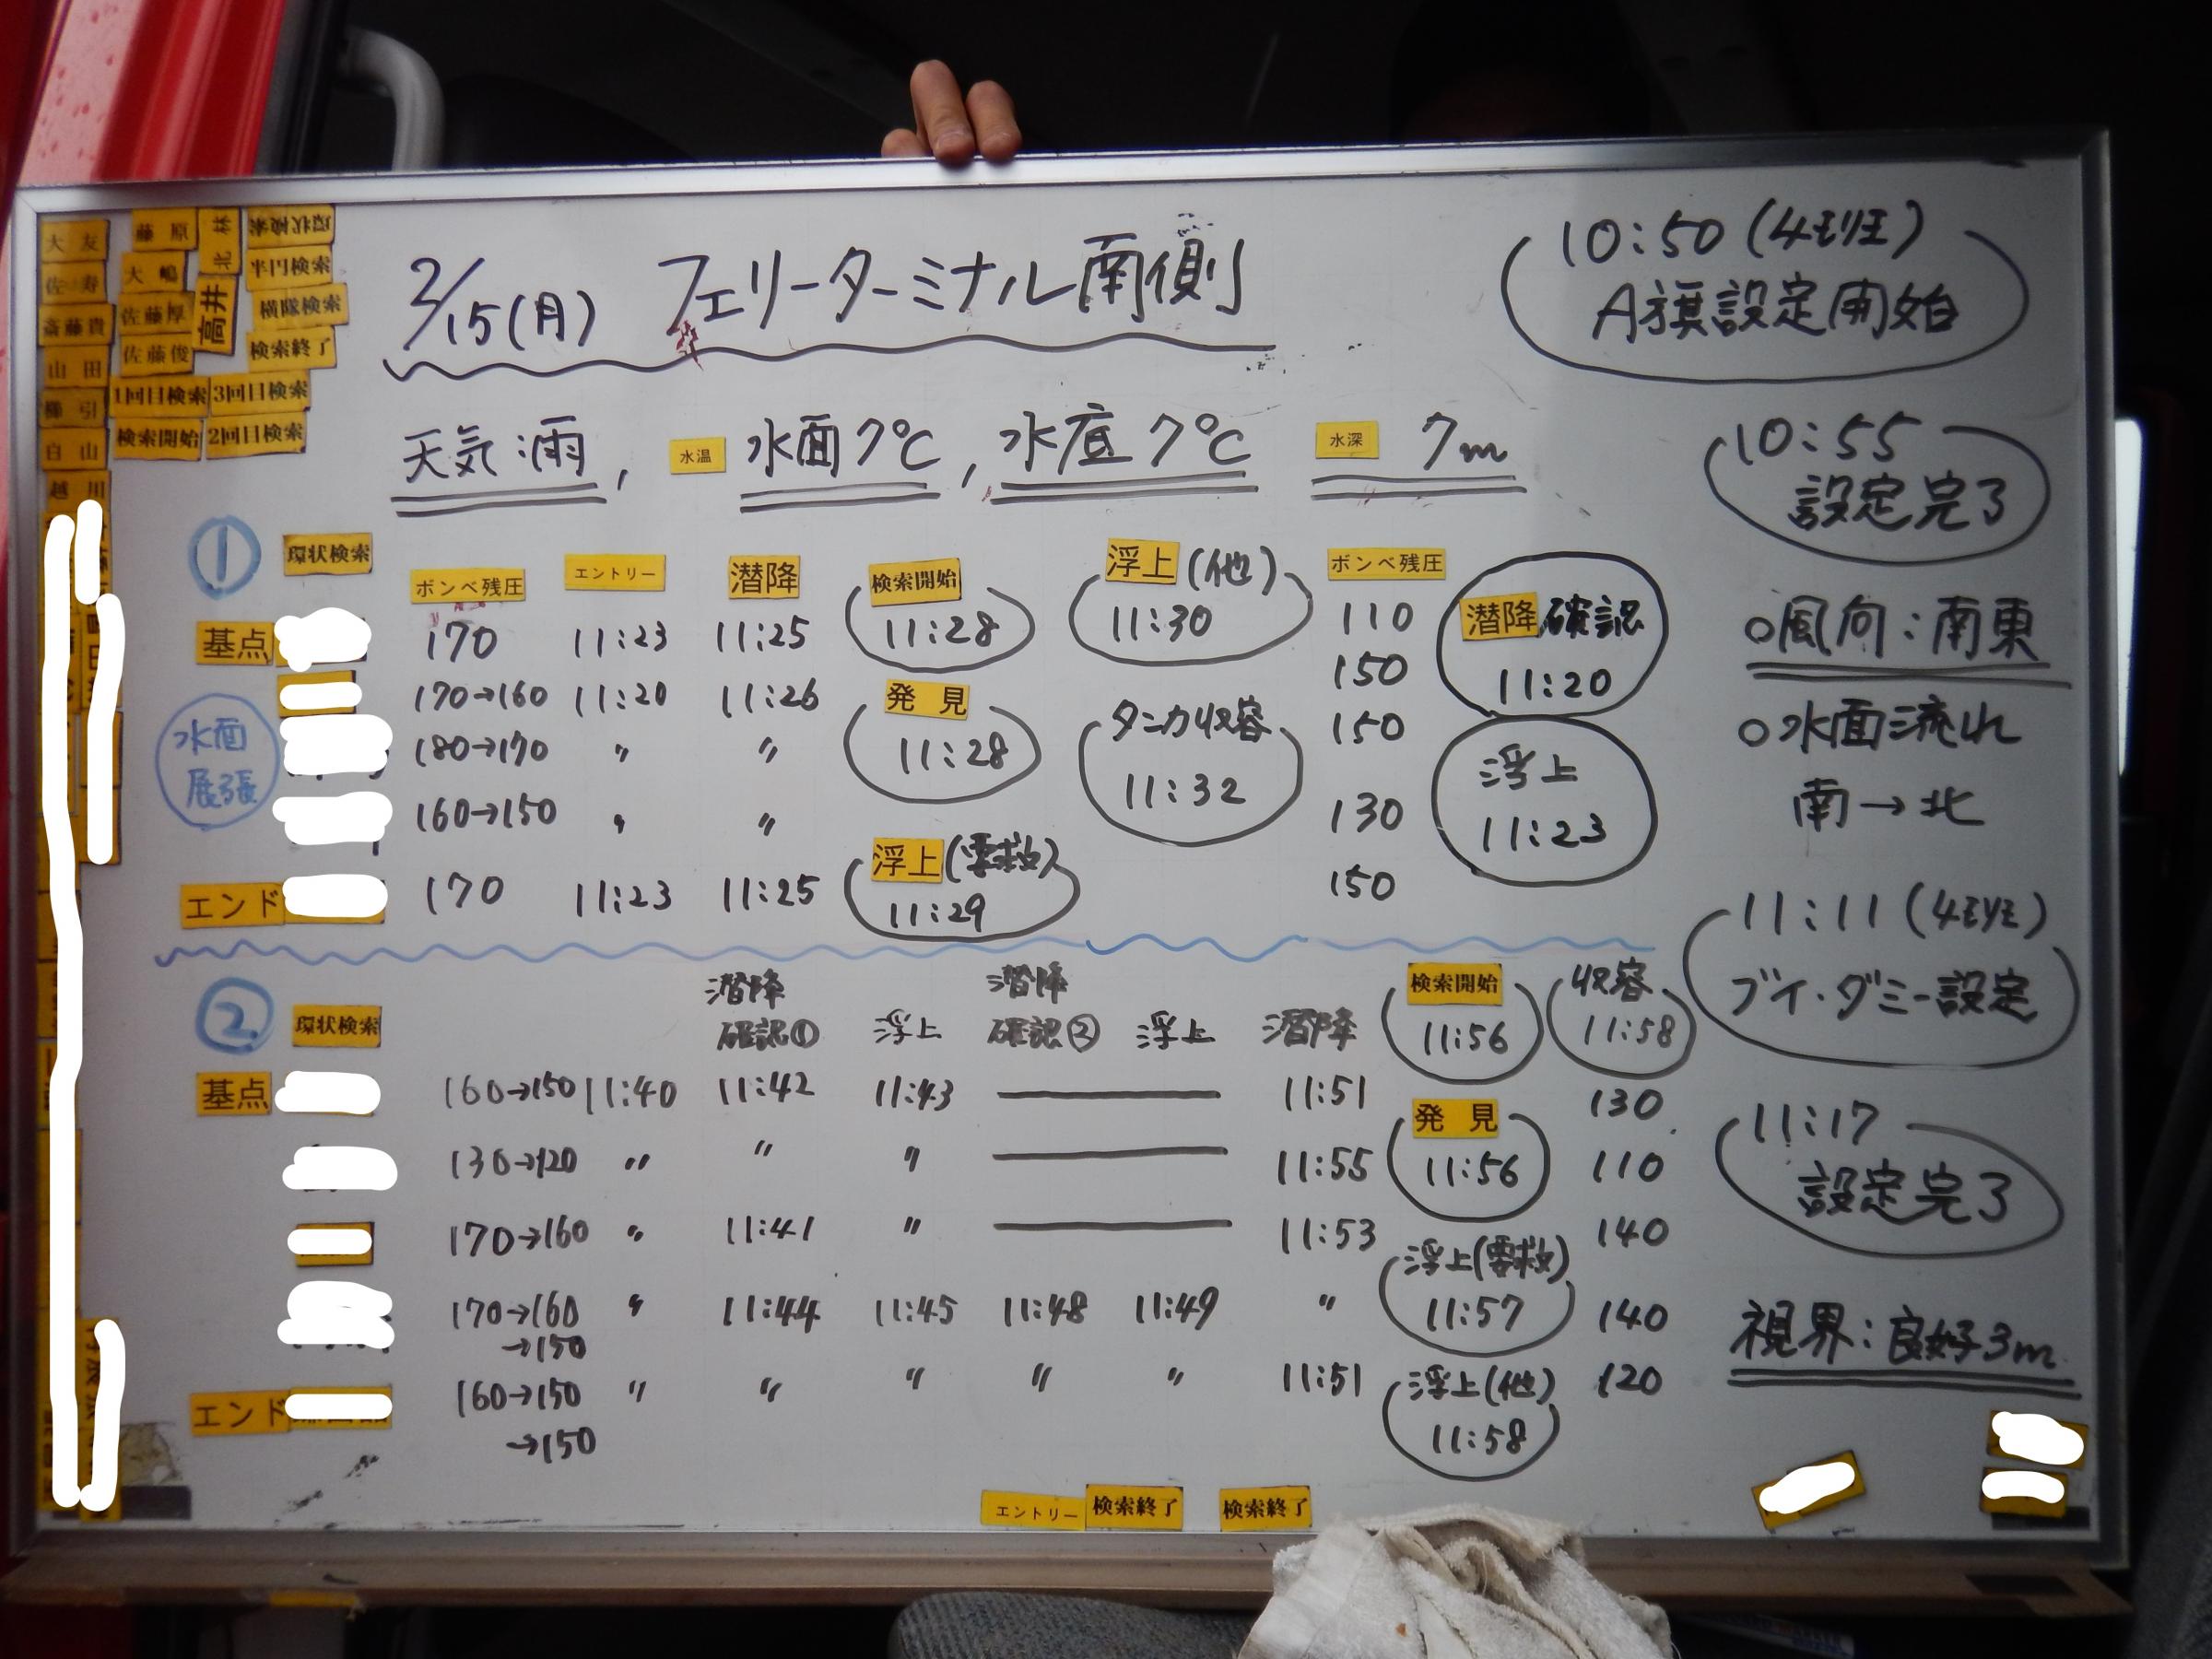 大友
佐 寿
斎藤貴
山田
櫛引
白山
越川
藤原
大嶋
佐藤厚
佐藤俊
林
北
高井
環状検索
半円検索
横隊検索
検索終了
1回目検索 3回目検索
検索開始 2回目検索
2/15(月) フェリーターミナル南側
天気:雨, 水温 水面7℃, 水底7℃ 水深 7m
10:50(4班)
A旗設定開始
10:55
設定完了
○風向:南東
○水面流れ
南→北
11:11(4班)
ブイ・ダミー設定
11:17
設定完了
視界:良好3m
① 環状検索
ボンベ残圧 エントリー 潜降 検索開始 浮上(他) ボンベ残圧
基点 170 11:23 11:25 11:28 11:30 110
170→160 11:20 11:26 発見 150
水面
展張
180→170 〃 〃 11:28 タンカ収容 150
160→150 〃 〃 11:32 130
浮上(要救)
エンド 170 11:23 11:25 11:29 150
潜降確認
11:20
浮上
11:23
② 環状検索
潜降確認① 浮上 潜降確認② 浮上 潜降 検索開始 収容
11:56 11:58
基点 160→150 11:40 11:42 11:43 11:51 130
発見
130→120 〃 〃 〃 11:55 11:56 110
170→160 〃 11:41 〃 11:53 140
浮上(要救)
170→160 〃 11:44 11:45 11:48 11:49 〃 11:57 140
→150
浮上(他)
エンド 160→150 〃 〃 〃 〃 〃 11:51 120
→150 11:58
エントリー 検索終了 検索終了